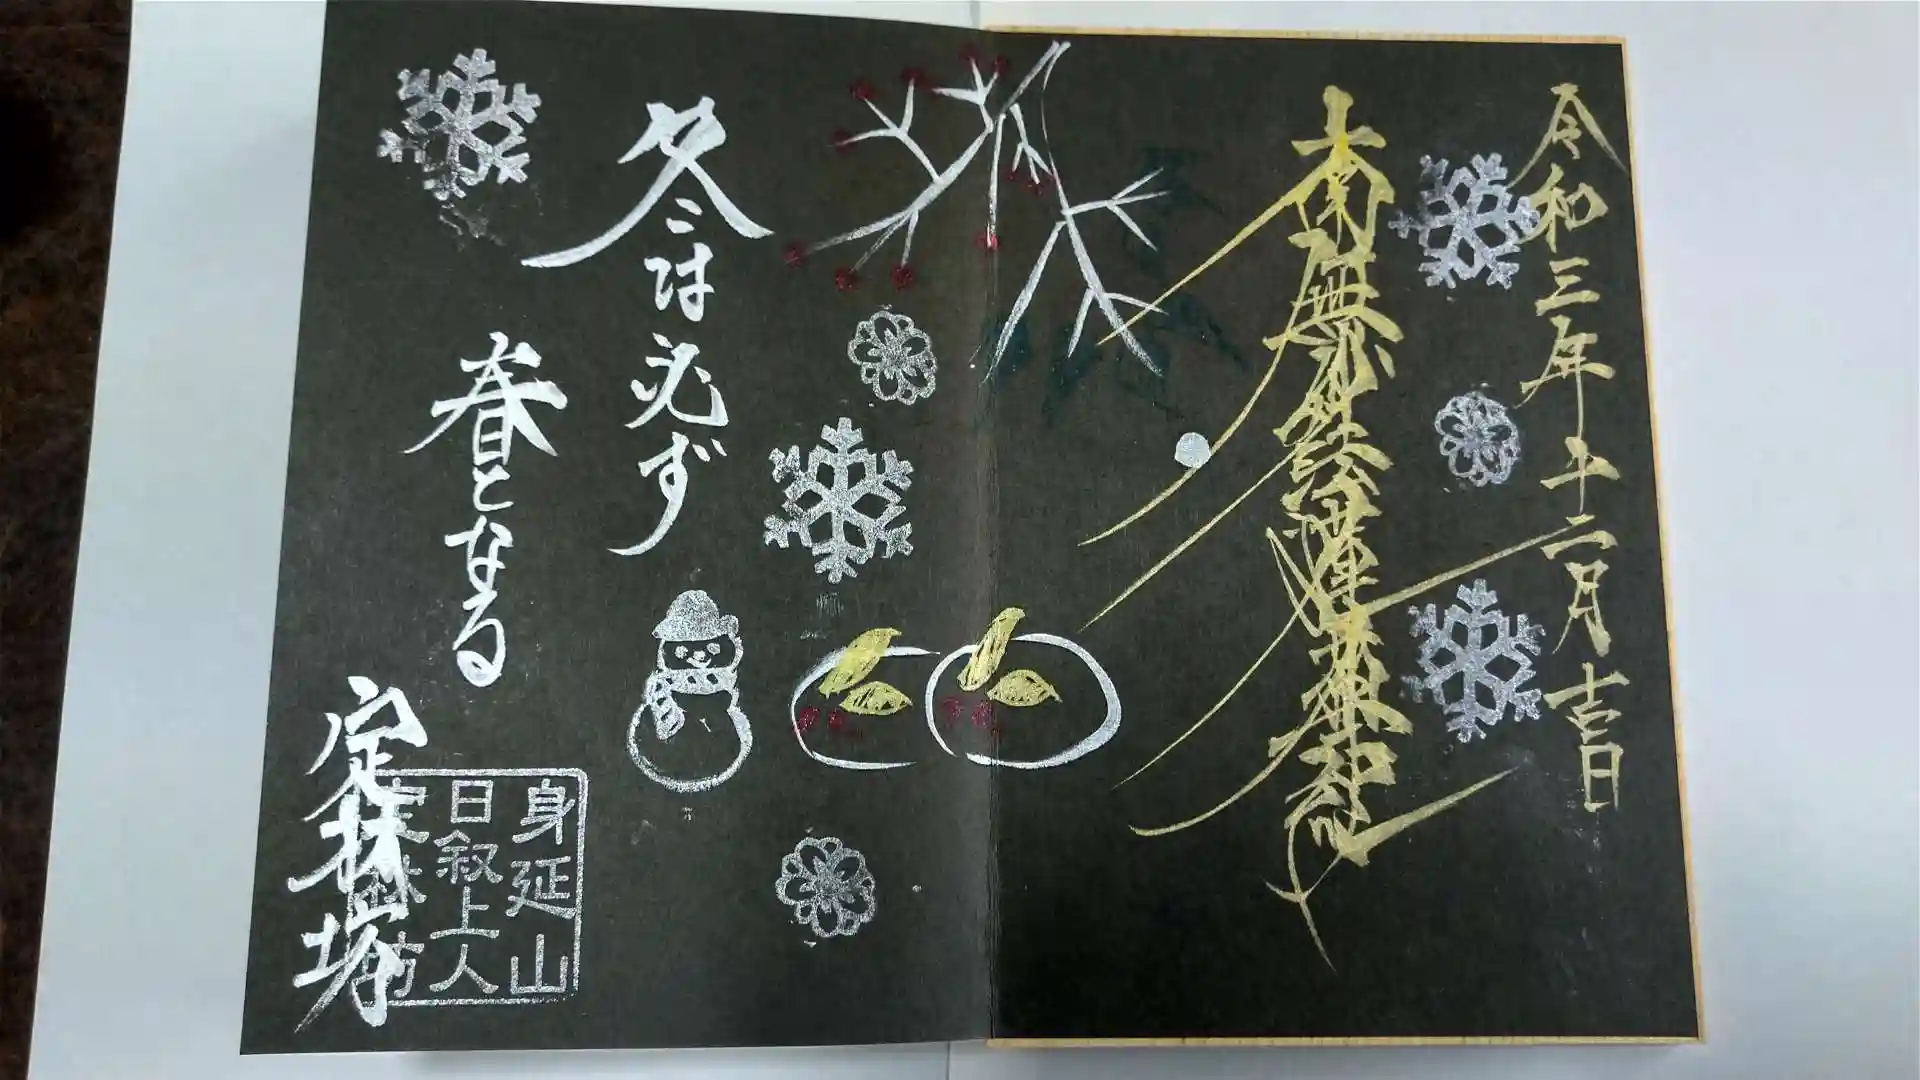 令和三年十二月吉日
南無妙法蓮華経
冬は必ず
春となる
定林坊
身延山
日叙上人
定林坊